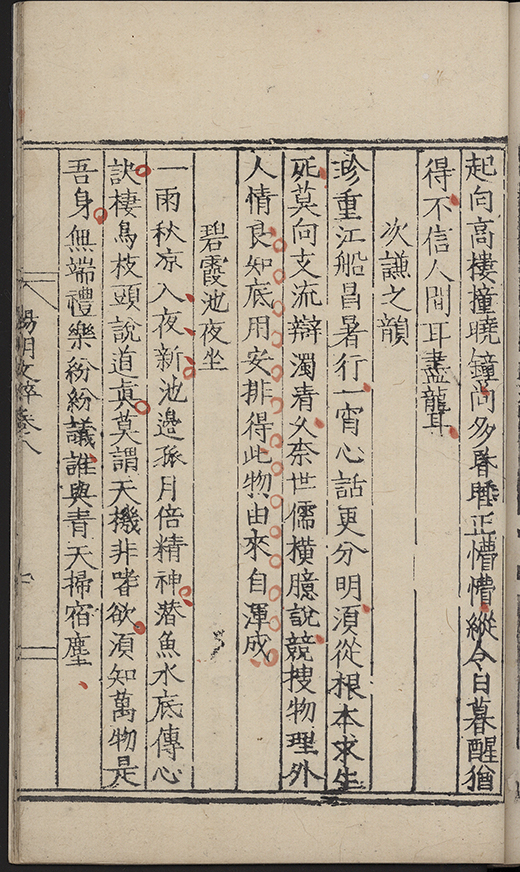 起向高樓撞曉鐘尚多昏睡正懵懵縱令日暮醒猶
得不信人間耳盡聾
次謙之韻
珍重江船冒暑行一宵心話更分明須從根本求生
死莫向支流辯濁清久奈世儒橫臆說競搜物理外
人情良知底用安排得此物由來自渾成
碧霞池夜坐
一雨秋凉入夜新池邊孤月倍精神潜魚水底傳心
訣棲鳥枝頭說道眞莫謂天機非嗜欲須知萬物是
吾身無端禮樂紛紛議誰與青天掃宿塵
陽明文粹卷八